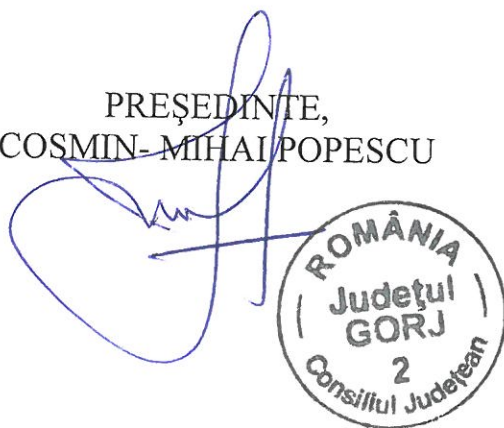 PREŞEDINTE,
COSMIN- MIHAI POPESCU
ROMÂNIA
Judeţul
GORJ
2
Consiliul Judeţean